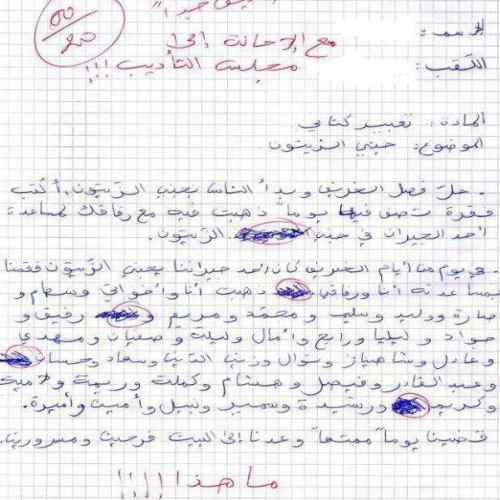 00/20
الاسم:
مع الإحالة إلى
اللقب:
مجلس التأديب !!!
المادة: تعبير كتابي
الموضوع: جني الزيتون
- حلّ فصل الخريف وبدأ الناس بجني الزيتون. أكتب
فقرة تصف فيها يوما ذهبت فيه مع رفاقك لمساعدة
أحد الجيران في جني الزيتون.
- في يوم من أيام الخريف كان أحد جيراننا يجني الزيتون فقمنا
بمساعدته أنا ورفاقي ذهبت أنا وأخواتي وسهام و
سارة ووليد وسليم و محمد و مريم و رفيق و
جواد و ليليا ورابح وأمال وليلة و صفيان ومهدي
وعادل وشاهيناز ونوال وزينب وسعاد وحسان
وعبد القادر وفيصل و هشام وكملت وريمة ولامية
وكريم ورشيدة وسمير ونبيل وأمين وأميرة.
قضينا يوماً ممتعاً وعدنا إلى البيت فرحين ومسرورين.
ما هذا !!!!